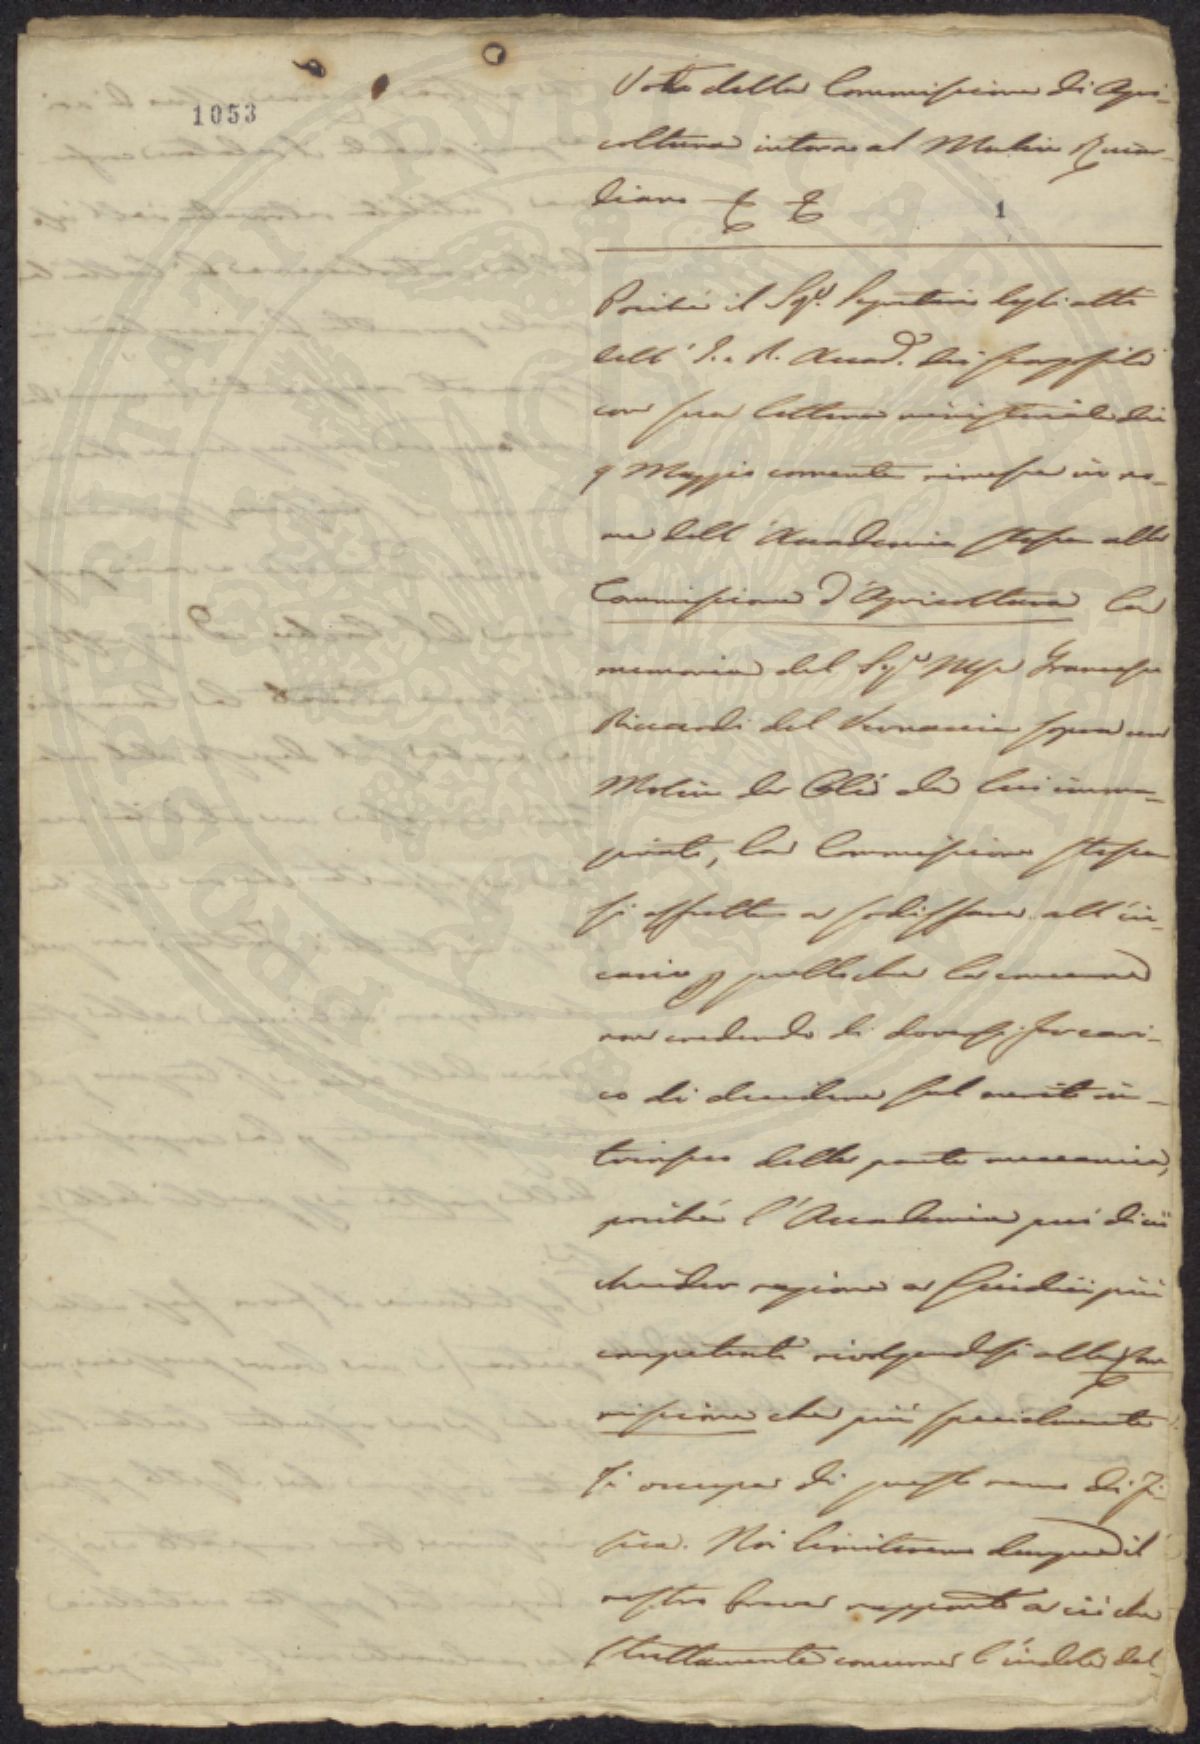 1053
Voto della Commissione di Agri-
coltura intorno al Mulino Ricar-
diano
1
Poiché il Sigr. Segretario degli atti
dell' I. e R. Accad. dei Georgofili
con sua lettera ministeriale dei
9 Maggio corrente rimesse in no-
me dell' Accademia stessa alla
Commissione d'Agricoltura la
memoria del Sigr. Mse Francesco
Riccardi del Vernaccia sopra un
Molino da Olio da lui imma-
ginato, la Commissione stessa
si affretta a sodisfare all' in-
carico quello che la concerne
non credendo di doversi far cari-
co di decidere sul merito in-
trinseco della parte meccanica,
poiché l' Accademia può di ciò
chieder ragione a Giudici più
competenti rivolgendosi alla Com
missione che più specialmente
si occupa di questo ramo di Fi
sica. Noi limiteremo dunque il
nostro breve rapporto a ciò che
strettamente concerne l' indole del-
PROSPERITATI PVBLICAE AVGENDAE